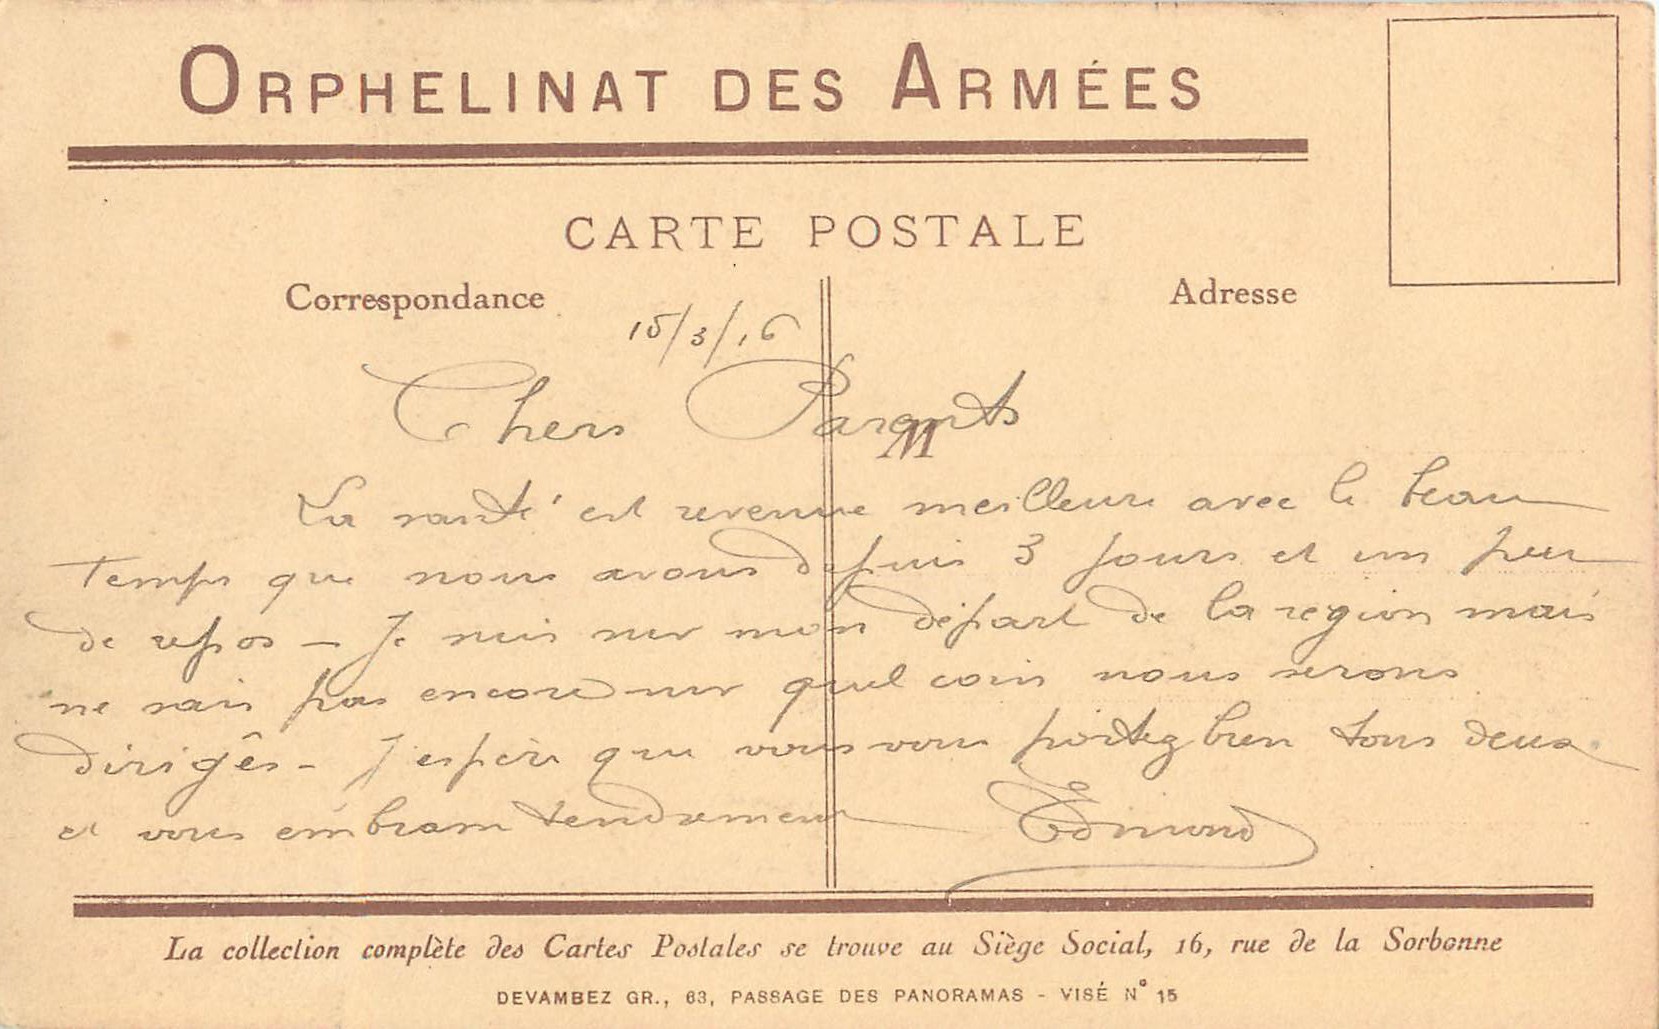 ORPHELINAT DES ARMÉES
CARTE POSTALE
Correspondance
Adresse
15/3/16
Chers Parents
M
La santé est revenue meilleure avec le beau
Temps que nous avons depuis 3 jours et un peu
de repos - Je suis sur mon départ de la region mais
ne sais pas encore sur quel coin nous serons
dirigês - J'espère que vous vous portez bien tous deux
et vous embrasse tendrement Edmond
La collection complète des Cartes Postales se trouve au Siège Social, 16, rue de la Sorbonne
DEVAMBEZ GR., 63, PASSAGE DES PANORAMAS - VISÉ N° 15